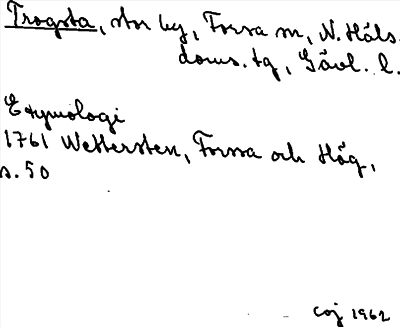 Trogsta, stor by, Forsa sn, N. Häls.
doms. tg, Gävl. l.
Etymologi
1761 Wettersten, Forssa och Hög,
s. 50
coj 1962